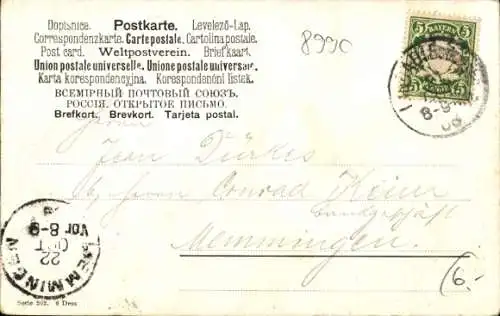 Dopisnice. Postkarte. Levelező-Lap.
Correspondenzkarte. Carte postale. Cartolina postale.
Post card. Weltpostverein. Briefkaart.
Union postale universelle. Unione postale universale.
Karta korespondencyjna. Korespondenční listek.
ВСЕМІРНЫЙ ПОЧТОВЫЙ СОЮЗЪ.
РОССІЯ. ОТКРЫТОЕ ПИСЬМО.
Brefkort. Brevkort. Tarjeta postal.
8990
5 BAYERN 5
8-9
Jean Dürkes
Conrad Keim
Memmingen.
MEMMINGEN
22
OCT
Vor 8-9
6.-
Serie 202. 6 Dess